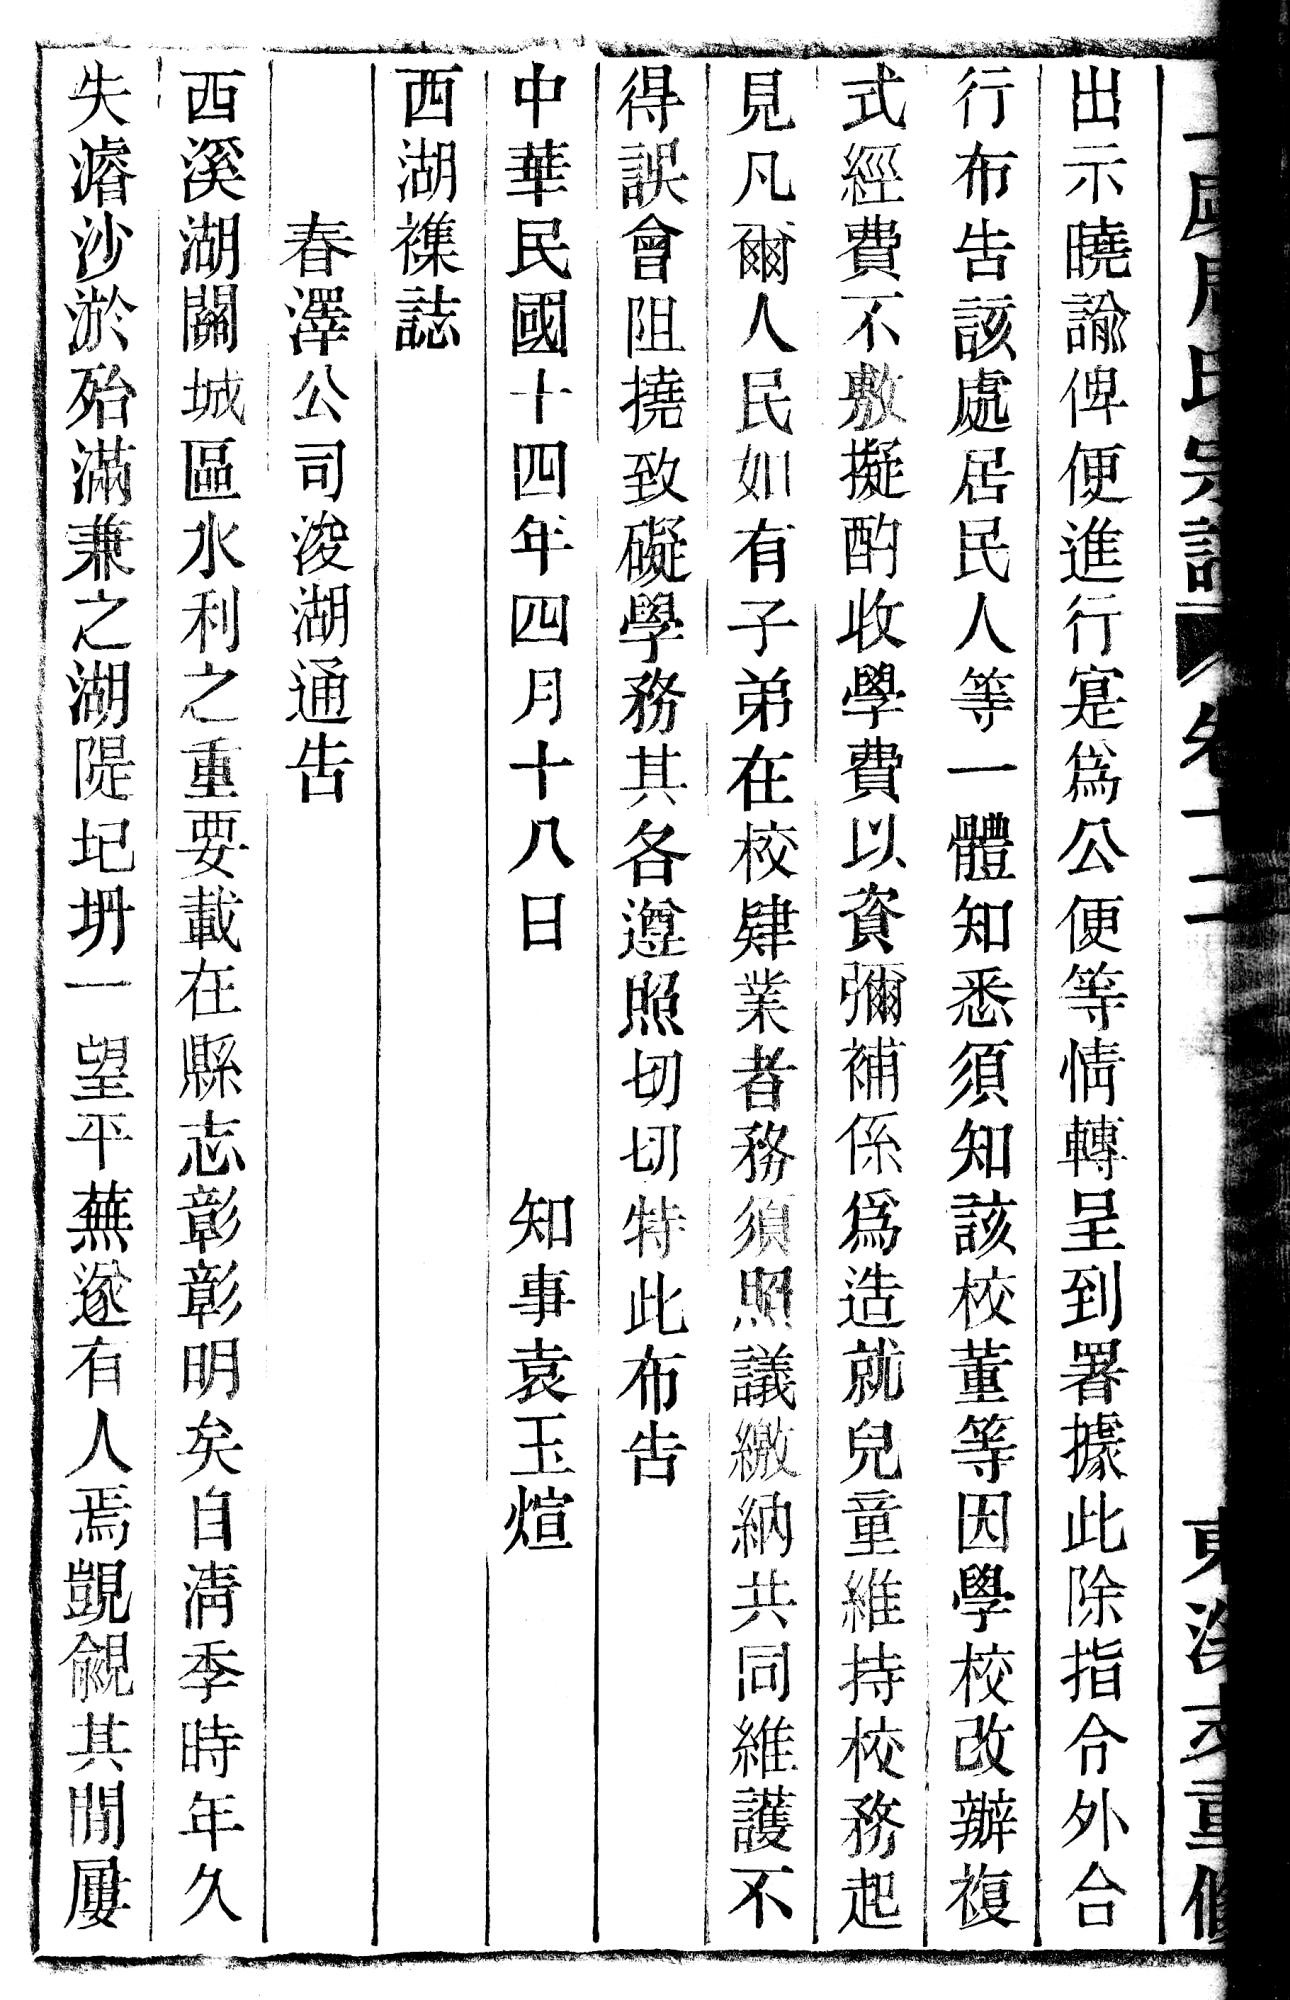 周氏宗譜 卷十二 重修
出示曉諭俾便進行寔爲公便等情轉呈到署據此除指令外合
行布告該處居民人等一體知悉須知該校董等因學校改辦複
式經費不敷擬酌收學費以資彌補係爲造就兒童維持校務起
見凡爾人民如有子弟在校肄業者務須照議繳納共同維護不
得誤會阻撓致礙學務其各遵照切切特此布告
中華民國十四年四月十八日 知事袁玉煊
西湖襍誌
春澤公司浚湖通告
西溪湖關城區水利之重要載在縣志彰彰明矣自清季時年久
失濬沙淤殆滿兼之湖隄圮坍一望平蕪遂有人焉覬覦其間屢